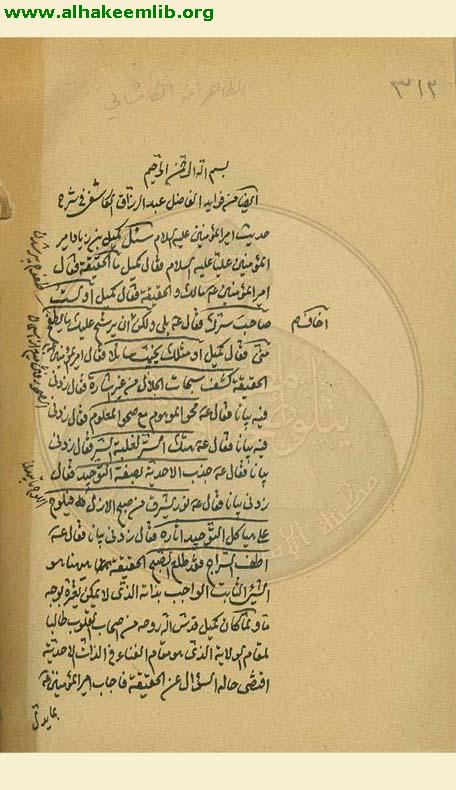 www.alhakeemlib.org
٣١٢
بسم الله الرحمن الرحيم
ايضا من فوايد الفاضل عبد الرزاق الكاشي في شرح
حديث امير المؤمنين عليه السلام سئل كميل بن زياد امير
المؤمنين عليا عليه السلام فقال كميل ما الحقيقة فقال
امير المؤمنين ع مالك والحقيقة فقال كميل اولست
صاحب سرك فقال ع بلى ولكن ان يرشح عليك ما يطفح
منى فقال كميل او مثلك يخيب سائلا فقال امير المؤمنين
الحقيقة كشف سبحات الجلال من غير اشارة فقال زدنى
فيه بيانا فقال ع محو الموهوم مع صحو المعلوم فقال زدنى
فيه بيانا فقال ع هتك الستر لغلبة السر فقال زدنى
بيانا فقال ع جذب الاحدية لصفة التوحيد فقال
زدنى بيانا فقال ع نور يشرق من صبح الازل فيلوح
على هياكل التوحيد اثاره فقال زدنى بيانا فقال ع
اطف السراج فقد طلع الصبح الحقيقة ههنا هو
الشئ الثابت الواجب بذاته الذى لا يمكن تغيره بوجه
ما ولما كان كميل قدس الله روحه من اصحاب القلوب طالبا
لمقام الولاية الذى هو مقام الفناء فى الذات الاحدية
اقتضى حاله السؤال عن الحقيقة فاجاب امير المؤمنين ع
بما يدل